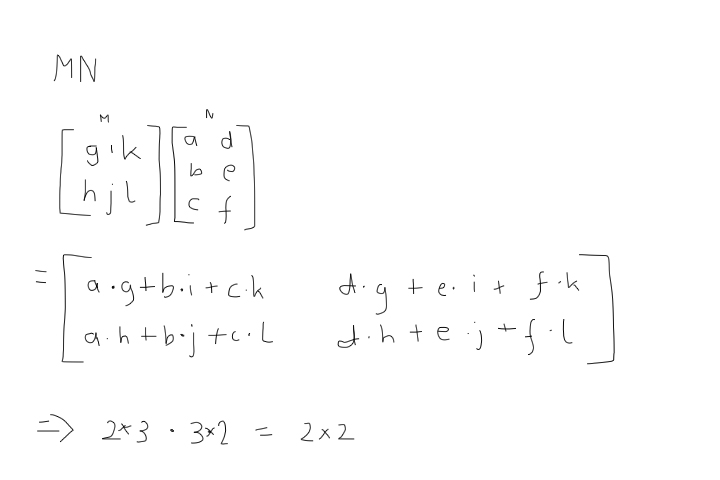 MN
M N
[ g i k ] [ a d ]
[ h j l ] [ b e ]
[ c f ]
= [ a·g+b·i+c·k d·g+e·i+f·k ]
[ a·h+b·j+c·L d·h+e·j+f·l ]
=> 2×3 · 3×2 = 2×2